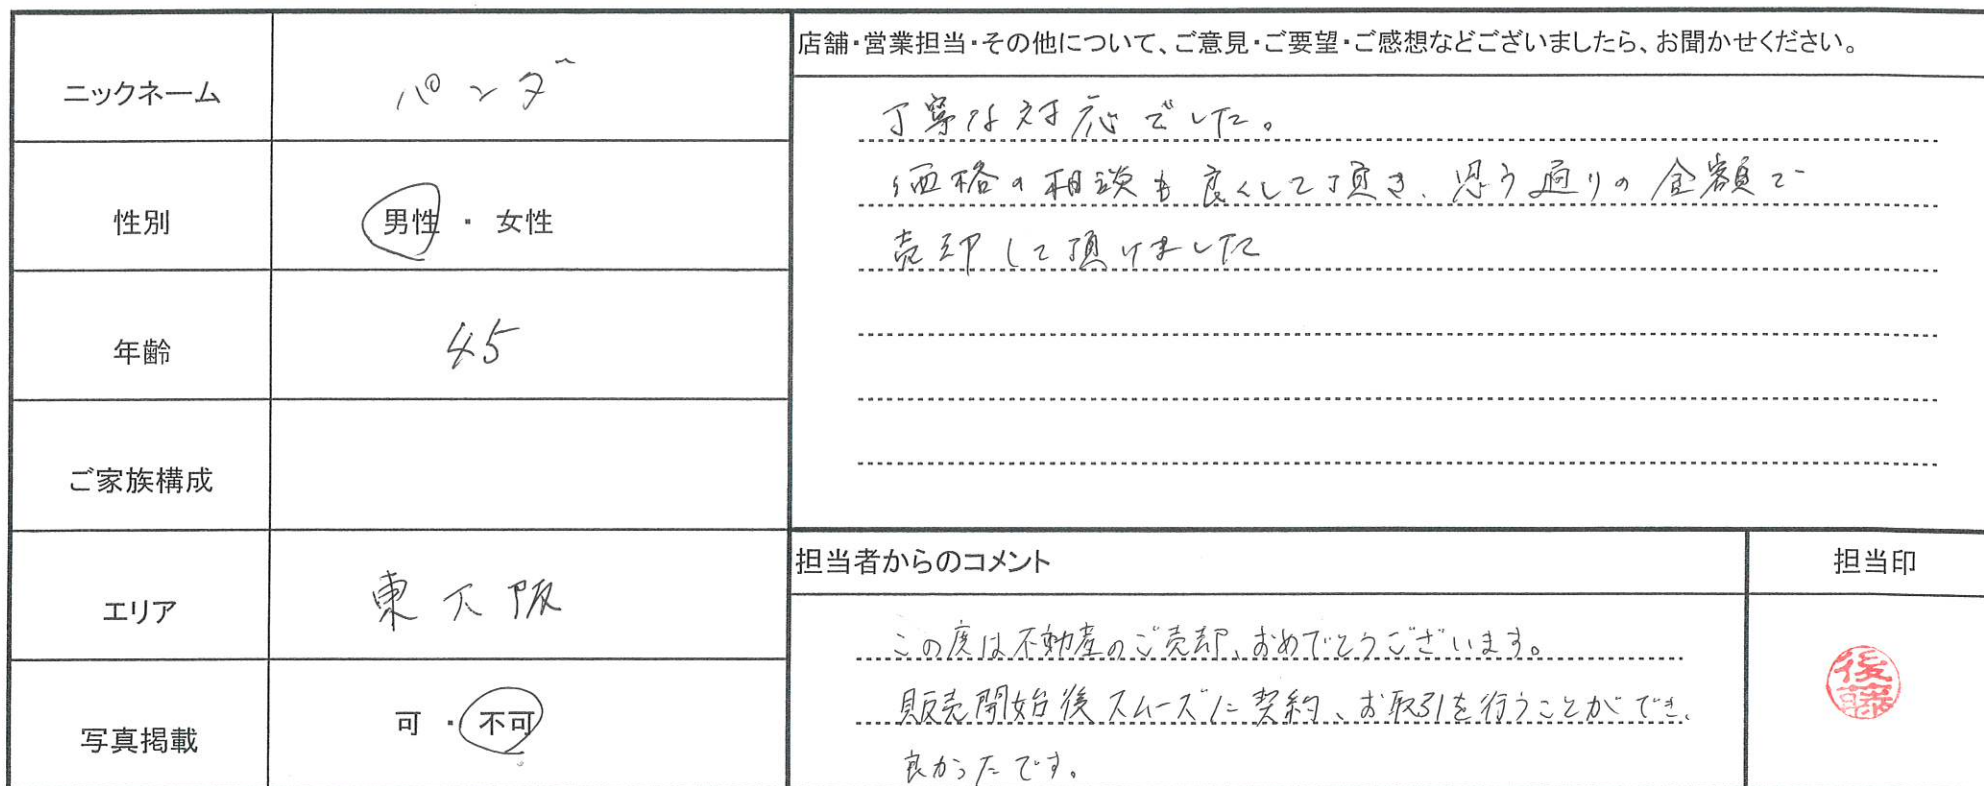 ニックネーム
パンダ
性別
男性 ・ 女性
年齢
45
ご家族構成
エリア
東大阪
写真掲載
可 ・ 不可
店舗・営業担当・その他について、ご意見・ご要望・ご感想などございましたら、お聞かせください。
丁寧な対応でした。
価格の相談も良くして頂き、思う通りの金額で
売却して頂けました
担当者からのコメント
この度は不動産のご売却、おめでとうございます。
販売開始後スムーズに契約、お取引を行うことができ、
良かったです。
担当印
後藤